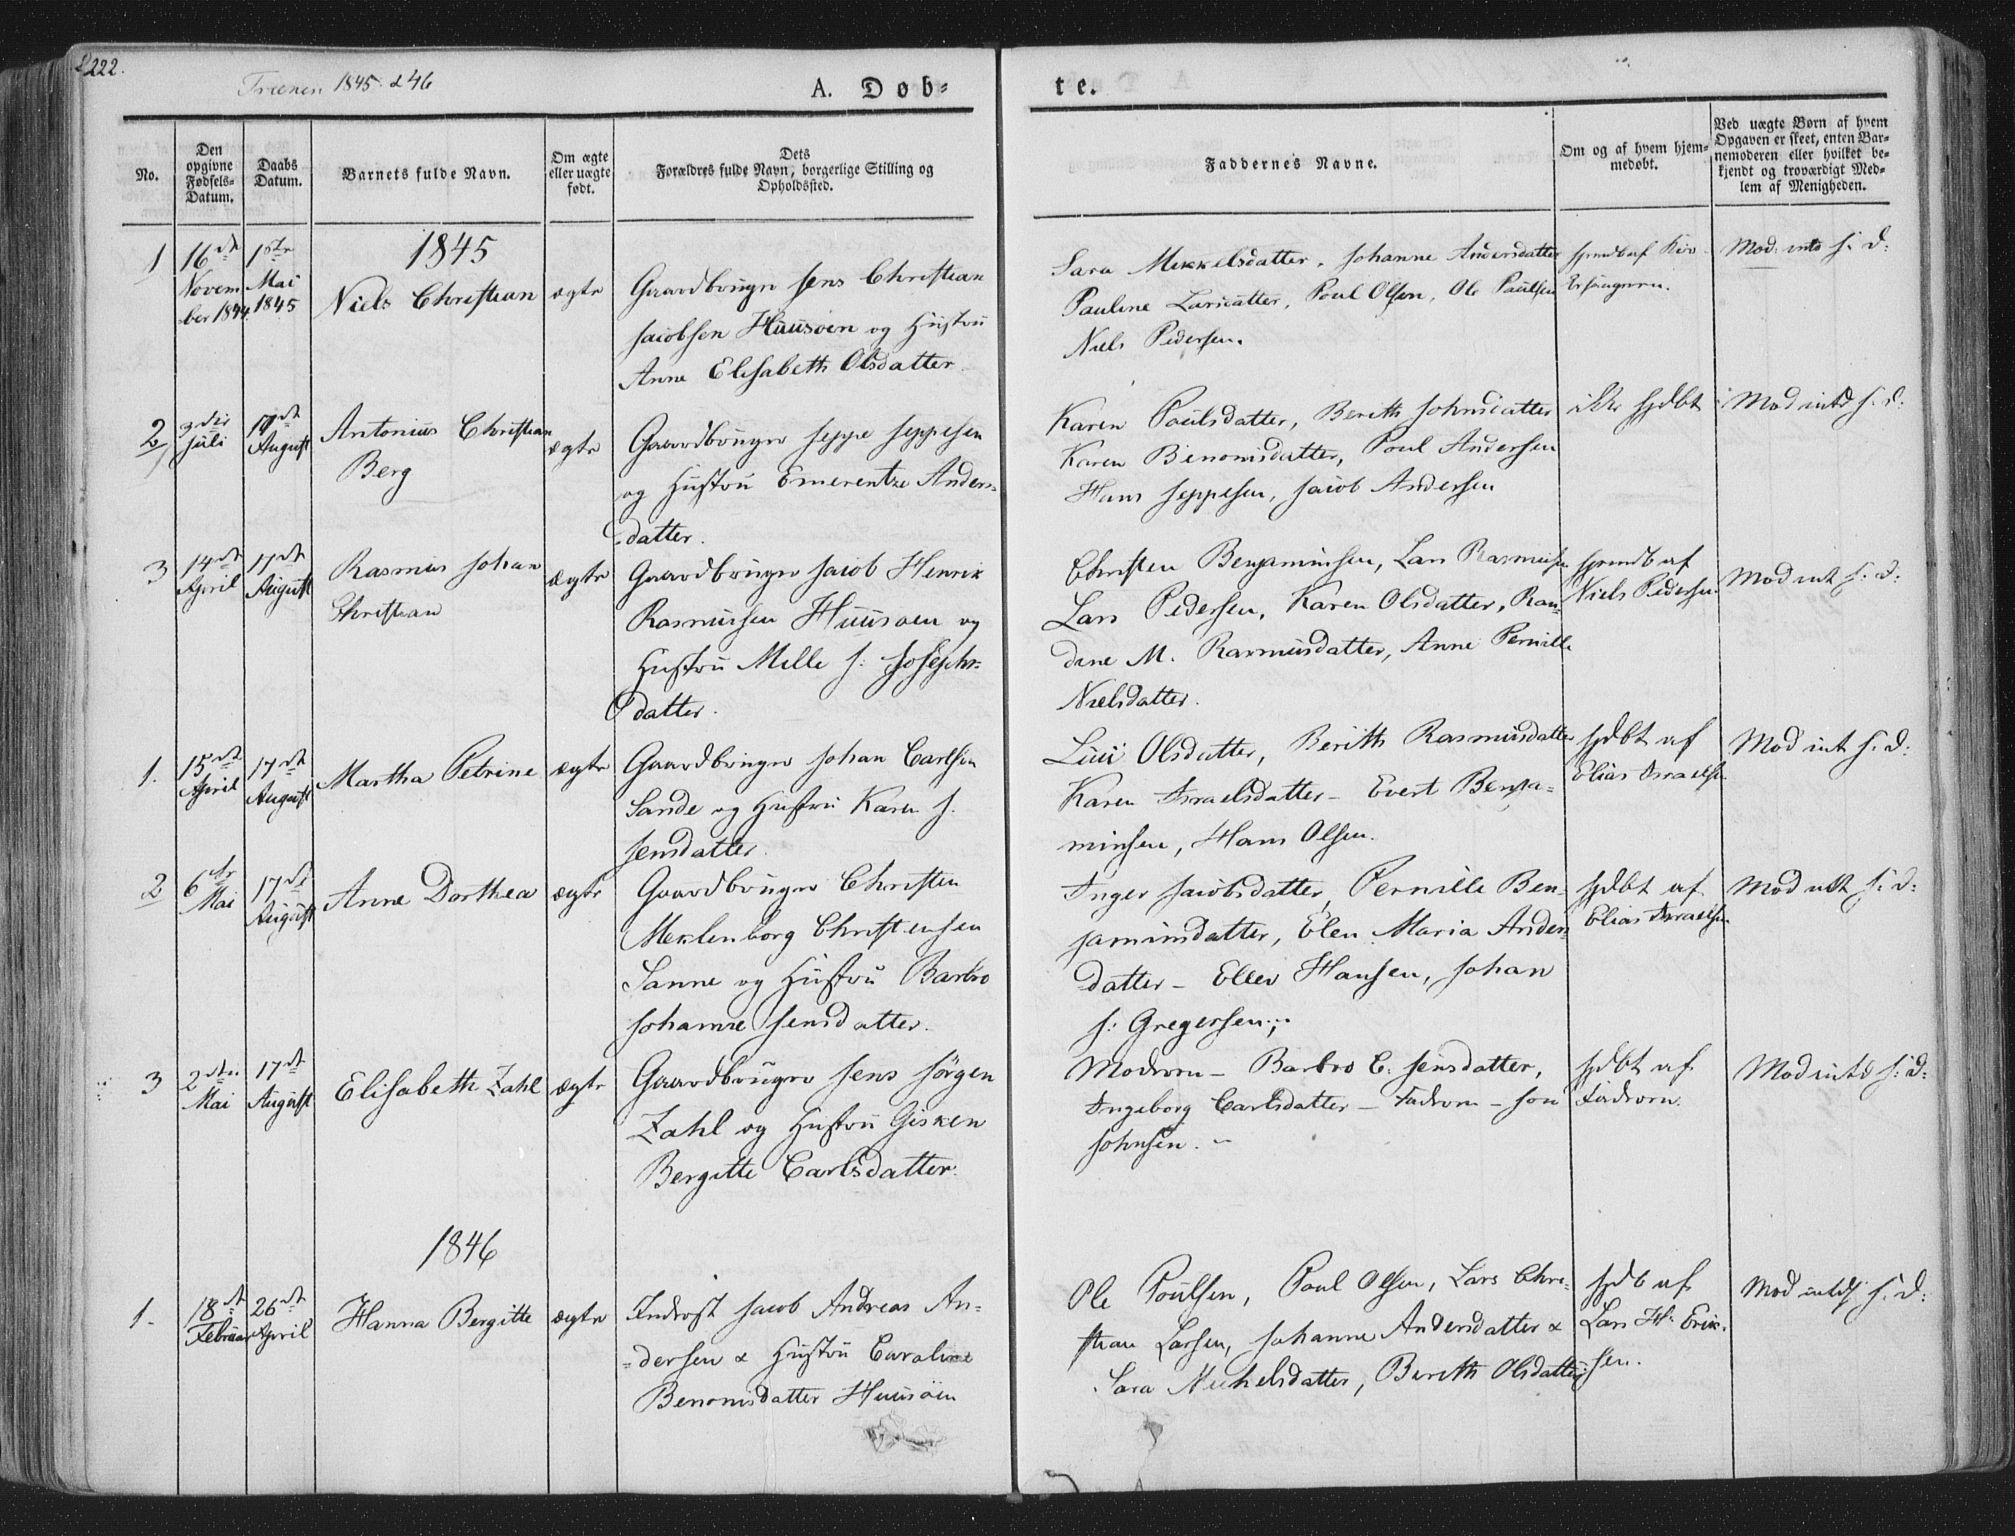 222.
Trænen 1845 & 46
A. Døb-
te.
No.
Den opgivne Fødsels-Datum.
Daabs Datum.
Barnets fulde Navn.
Om ægte eller uægte født.
Dets Forældres fulde Navn, borgerlige Stilling og Opholdssted.
Faddernes Navne.
Om og af hvem hjem-medøbt.
Ved uægte Børn af hvem Opgaven er skeet, enten Bar-nemoderen eller hvilket be-kjendt og troværdigt Med-lem af Menigheden.
1845
1
16de
Novem
ber 1844.
1ste
Mai
1845
Niels Christian
ægte
Gaardbruger Jens Christian
Jacobsen Huusøen og Hustru
Anne Elisabeth Olsdatter
Sara Mekkelsdatter, Johanne Andersdatter
Pauline Larsdatter, Poul Olsen, Ole Paulsen
Niels Pedersen.
Mod: inds s: d:
2
3die
Juli
17de
August
Antonius Christian
Berg
ægte
Gaardbruger Jeppe Jeppesen
og Hustru Emerentze Anders-
datter.
Karen Paulsdatter, Bereth Johnsdatter
Karen Benonisdatter, Poul Andersen
Hans Jeppesen, Jacob Andersen
ikke hjdbt
Mod inds s: d:
3
14de
April
17de
August
Rasmus Johan
Christian
ægte
Gaardbruger Jacob Henrik
Rasmussen Huusøen og
Hustru Mille J: Josephs-
datter.
Christen Benjaminsen, Lars Rasmusen
Lars Pedersen, Karen Olsdatter, Ran-
dine M. Rasmusdatter, Anne Pernille
Nielsdatter.
hjemdb af
Niels Pedersen.
Mod int s: d:
1.
15de
April
17de
August
Martha Petrine
ægte
Gaardbruger Johan Carlsen
Sande og Hustru Karen J.
Jensdatter.
Lusi Olsdatter, Berith Rasmusdatter
Karen Israelsdatter - Evert Benja-
minsen, Hans Olsen.
hjdbt af
Elias Israelsen
Mod int s: d:
2
6te
Mai
17de
August
Anne Dorthea
ægte
Gaardbruger Christen
Meklenborg Christensen
Sanne og Hustru Barbro
Johanne Jensdatter.
Inger Jacobsdatter, Pernille Ben-
jaminsdatter, Elen Maria Anders-
datter - Eller Hansen, Johan
J: Gregersen;
hjdbt af
Elias Israelsen
Mod int s: d:
3
2den
Mai
17de
August
Elisabeth Zahl
ægte
Gaardbruger Jens Jørgen
Zahl og Hustru Gisken
Bergitte Carlsdatter.
Moderen - Barbro C. Jensdatter,
Ingeborg Carlsdatter - Faderen - Jon
Johnsen.
hjdbt af
Faderen.
Mod inds s: d:
1846
1.
18de
Februar
26de
April
Hanna Bergitte
ægte
Inderst Jacob Andreas An-
dersen & Hustru Caroline
Benonisdatter Huusøen
Ole Poulsen, Paul Olsen, Lars Chri-
stian Larsen, Johanne Andersdatter &
Sara Michelsdatter, Bereth Olsdatter
hjdb af
Lars H. Erik-
sen.
Mod inds s: d: